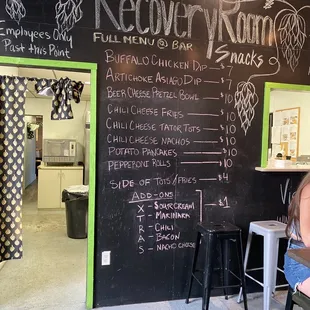 Employees Only
Past this Point
Recovery Room
Snacks
Full Menu @ Bar
Buffalo Chicken Dip 7
Artichoke Asiago Dip 7
Beer Cheese Pretzel Bowl $10
Chili Cheese Fries $10
Chili Cheese Tator Tots $10
Chili Cheese Nachos $10
Potato Pancakes $10
Pepperoni Rolls $10
Side of Tots/Fries
Add-Ons
X - Sour Cream
T - Marinara
R - Chili
A - Bacon
S - Nacho Cheese
$1